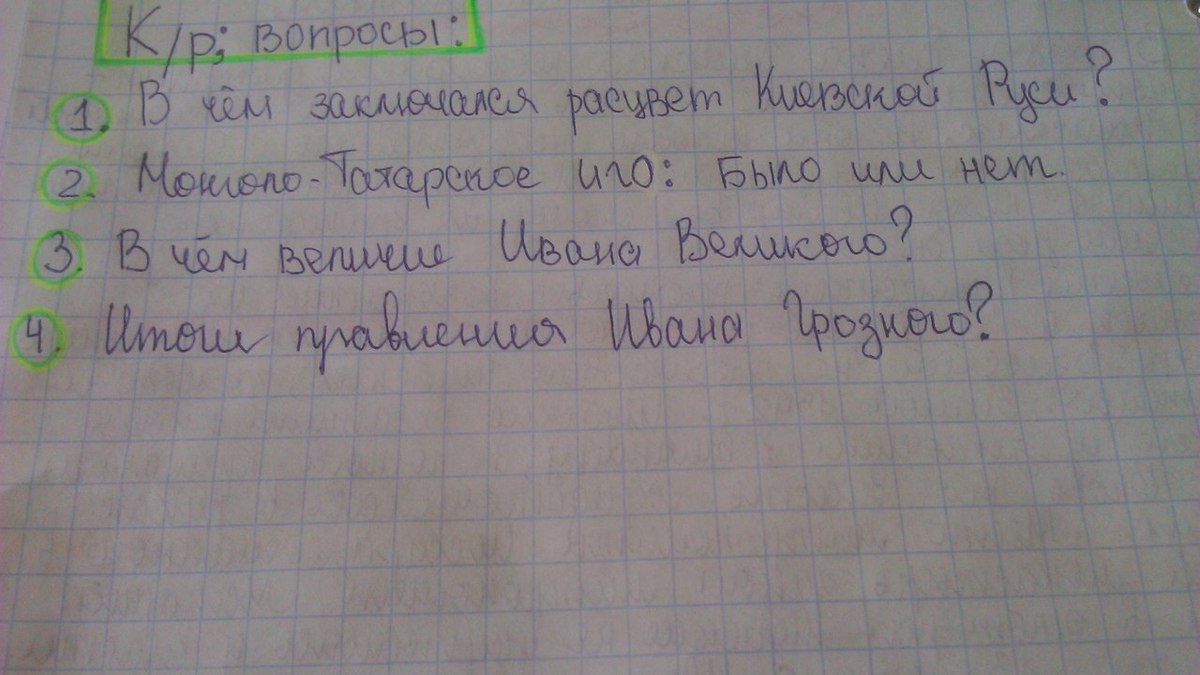 К/р; вопросы:
1. В чём заключался расцвет Киевской Руси?
2. Монголо-Татарское иго: Было или нет.
3. В чём величие Ивана Великого?
4. Итоги правления Ивана Грозного?